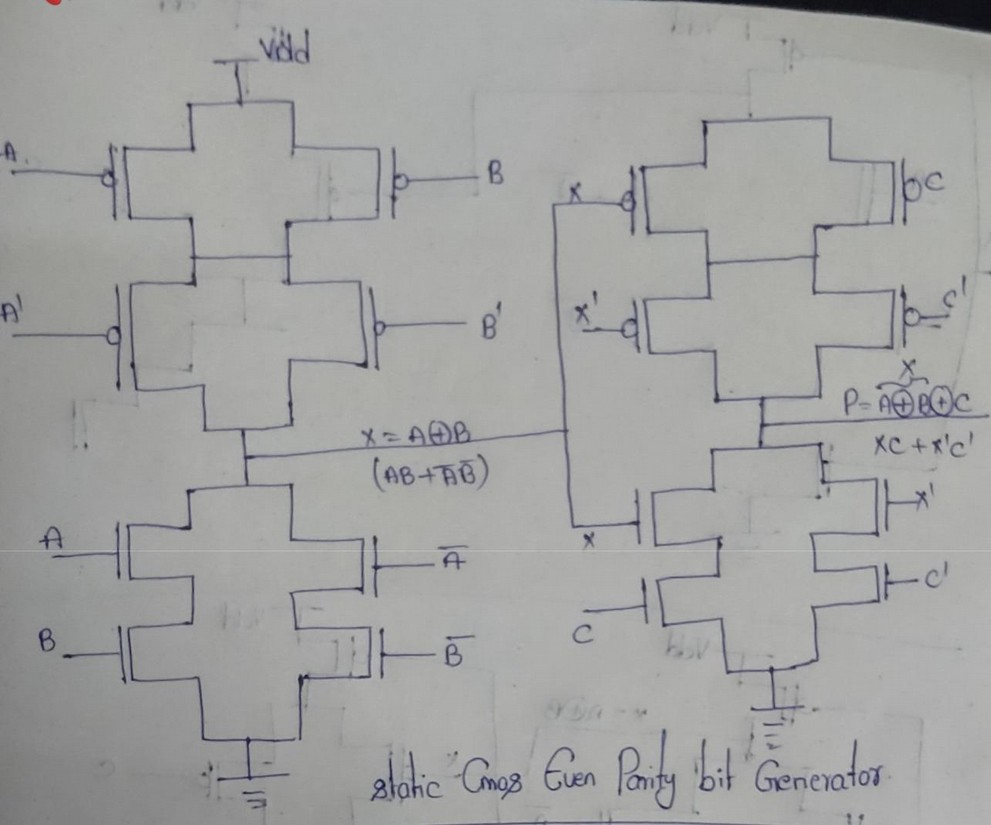 Vdd
A
B
A'
B'
X = A⊕B
(AB+A̅B̅)
A
A̅
B
B̅
X
C
X'
C'
X
P = A⊕B⊕C
XC + X'C'
X
X'
C
C'
static Cmos Even Parity bit Generator